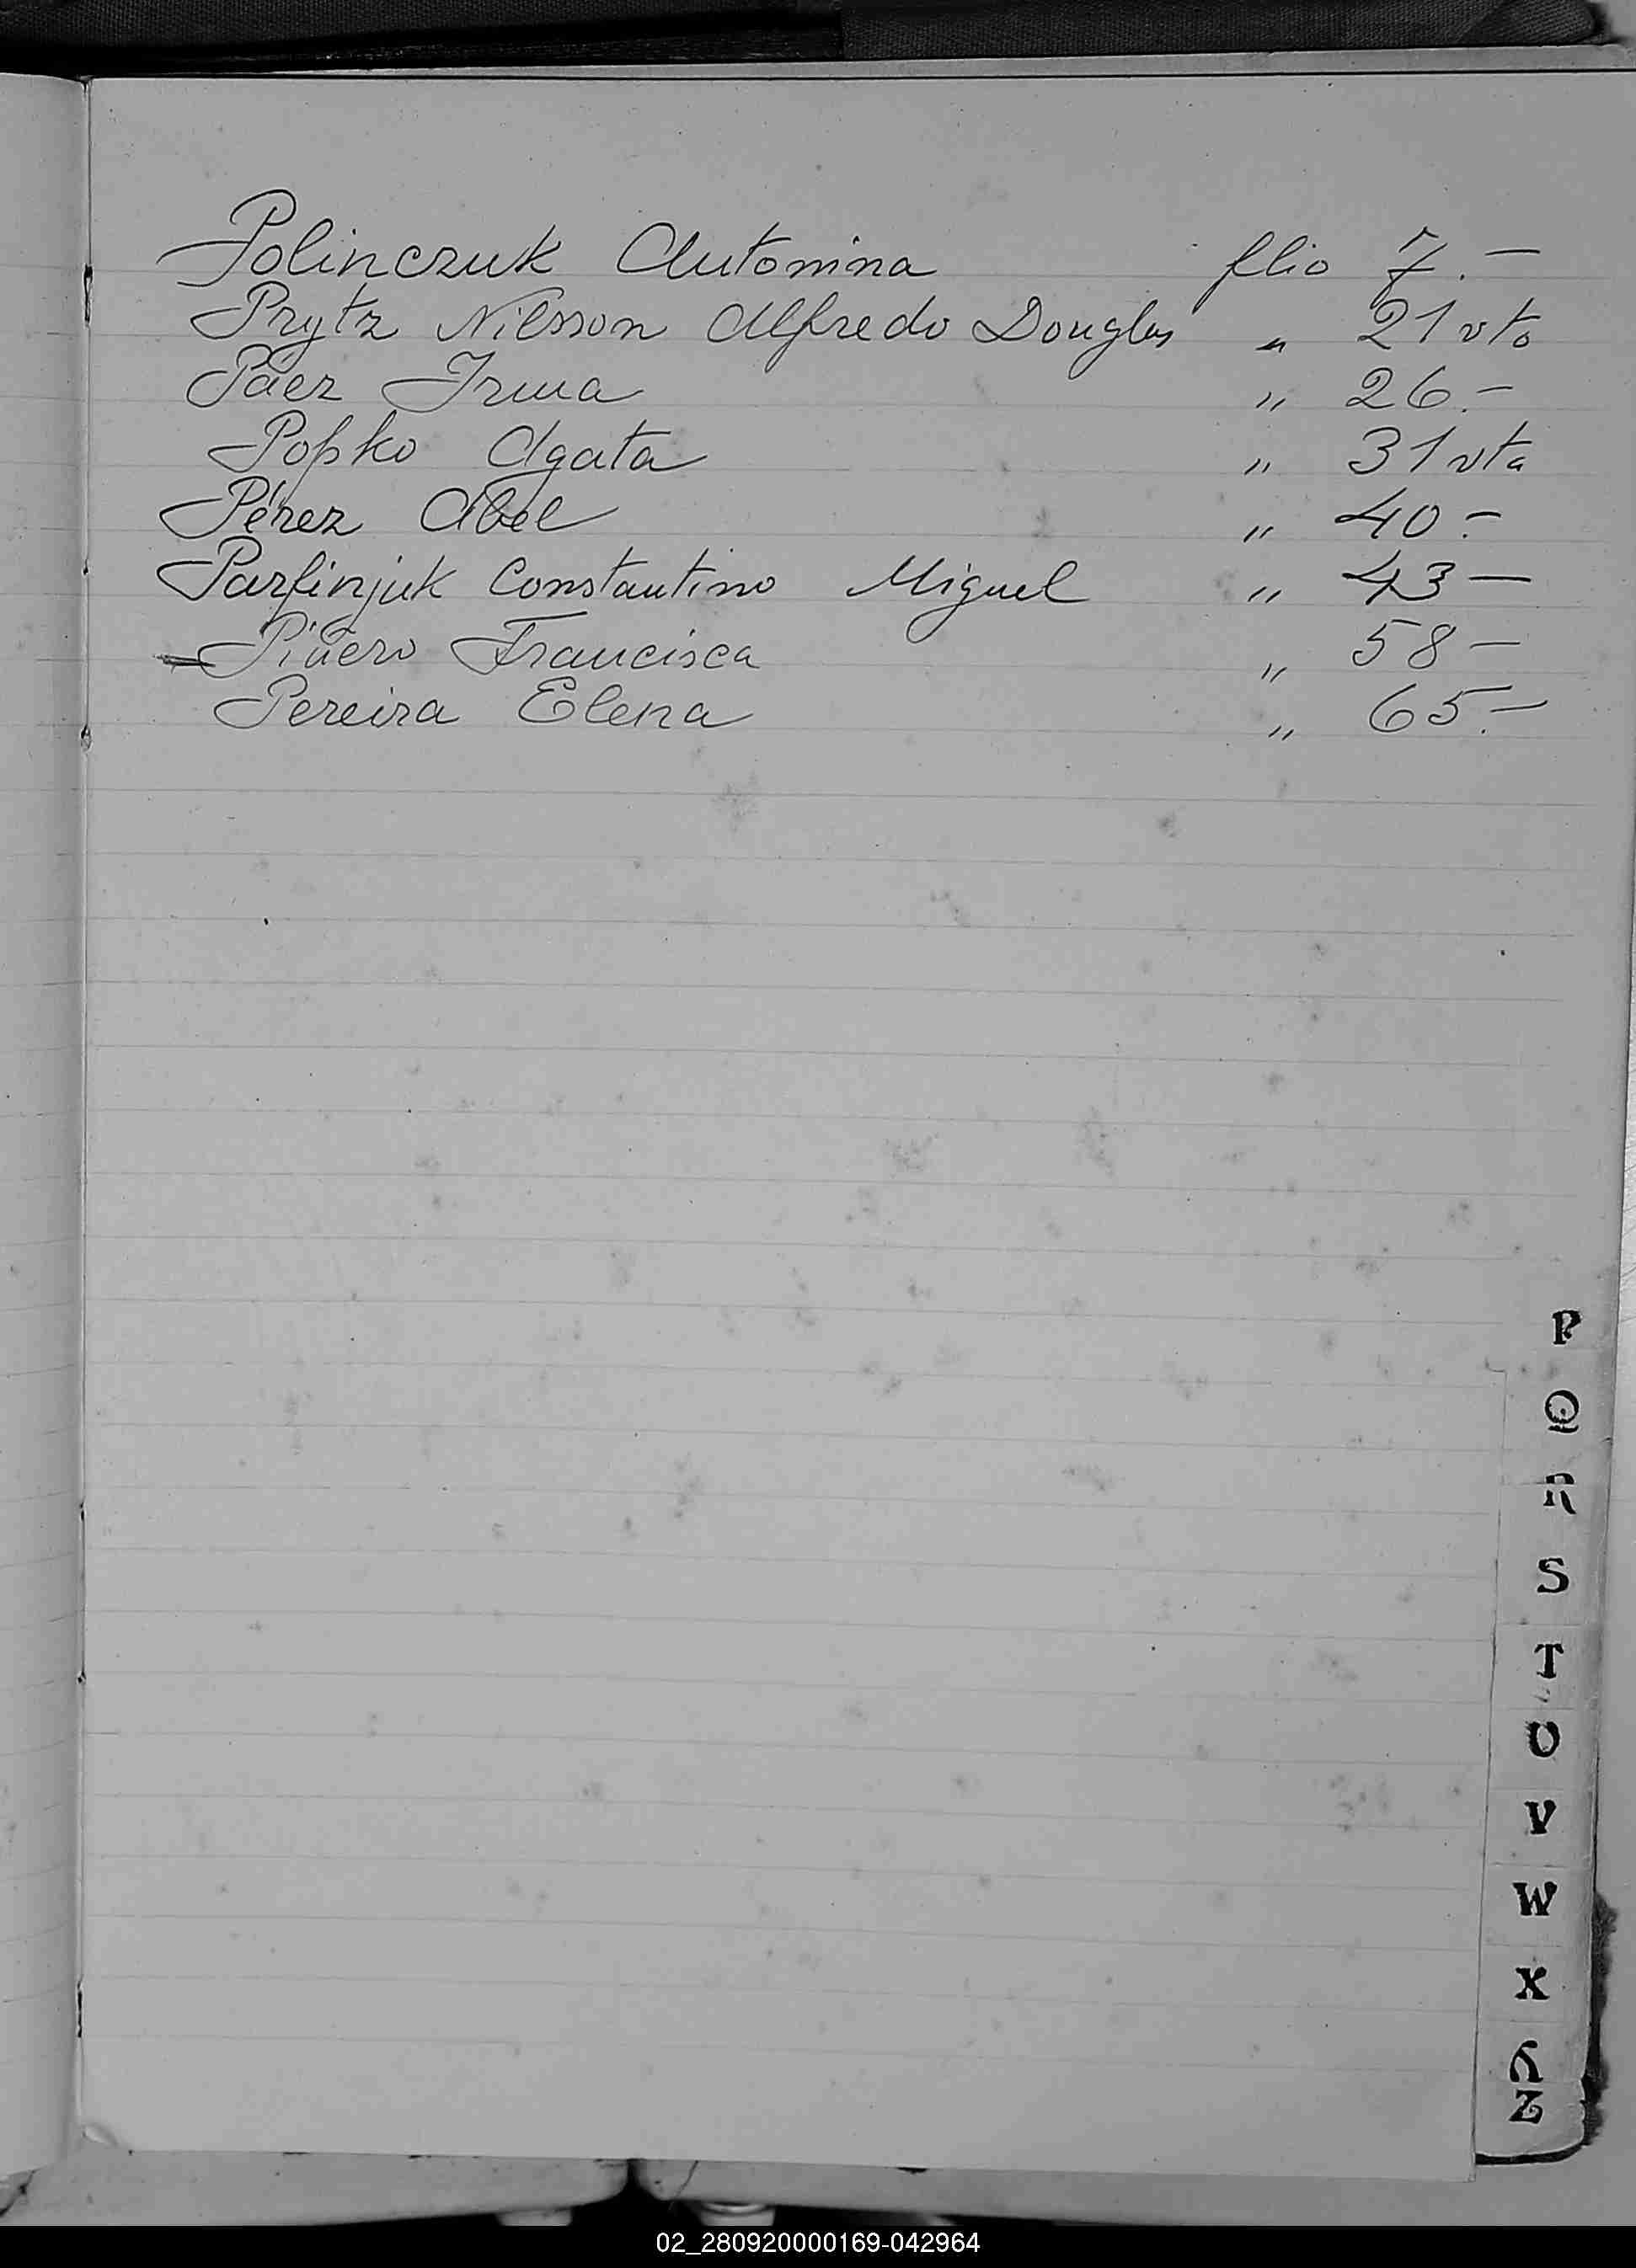 Polinczuk Antonina flio 7.-
Prytz Nilsson Alfredo Douglas " 21 vto
Páez Irma " 26.-
Popko Agata " 31 vta
Pérez Abel " 40 -
Parfinjuk Constantino Miguel " 43 -
Piñero Francisca " 58 -
Pereira Elena " 65.-
P
Q
R
S
T
U
V
W
X
Y
Z
02_280920000169-042964